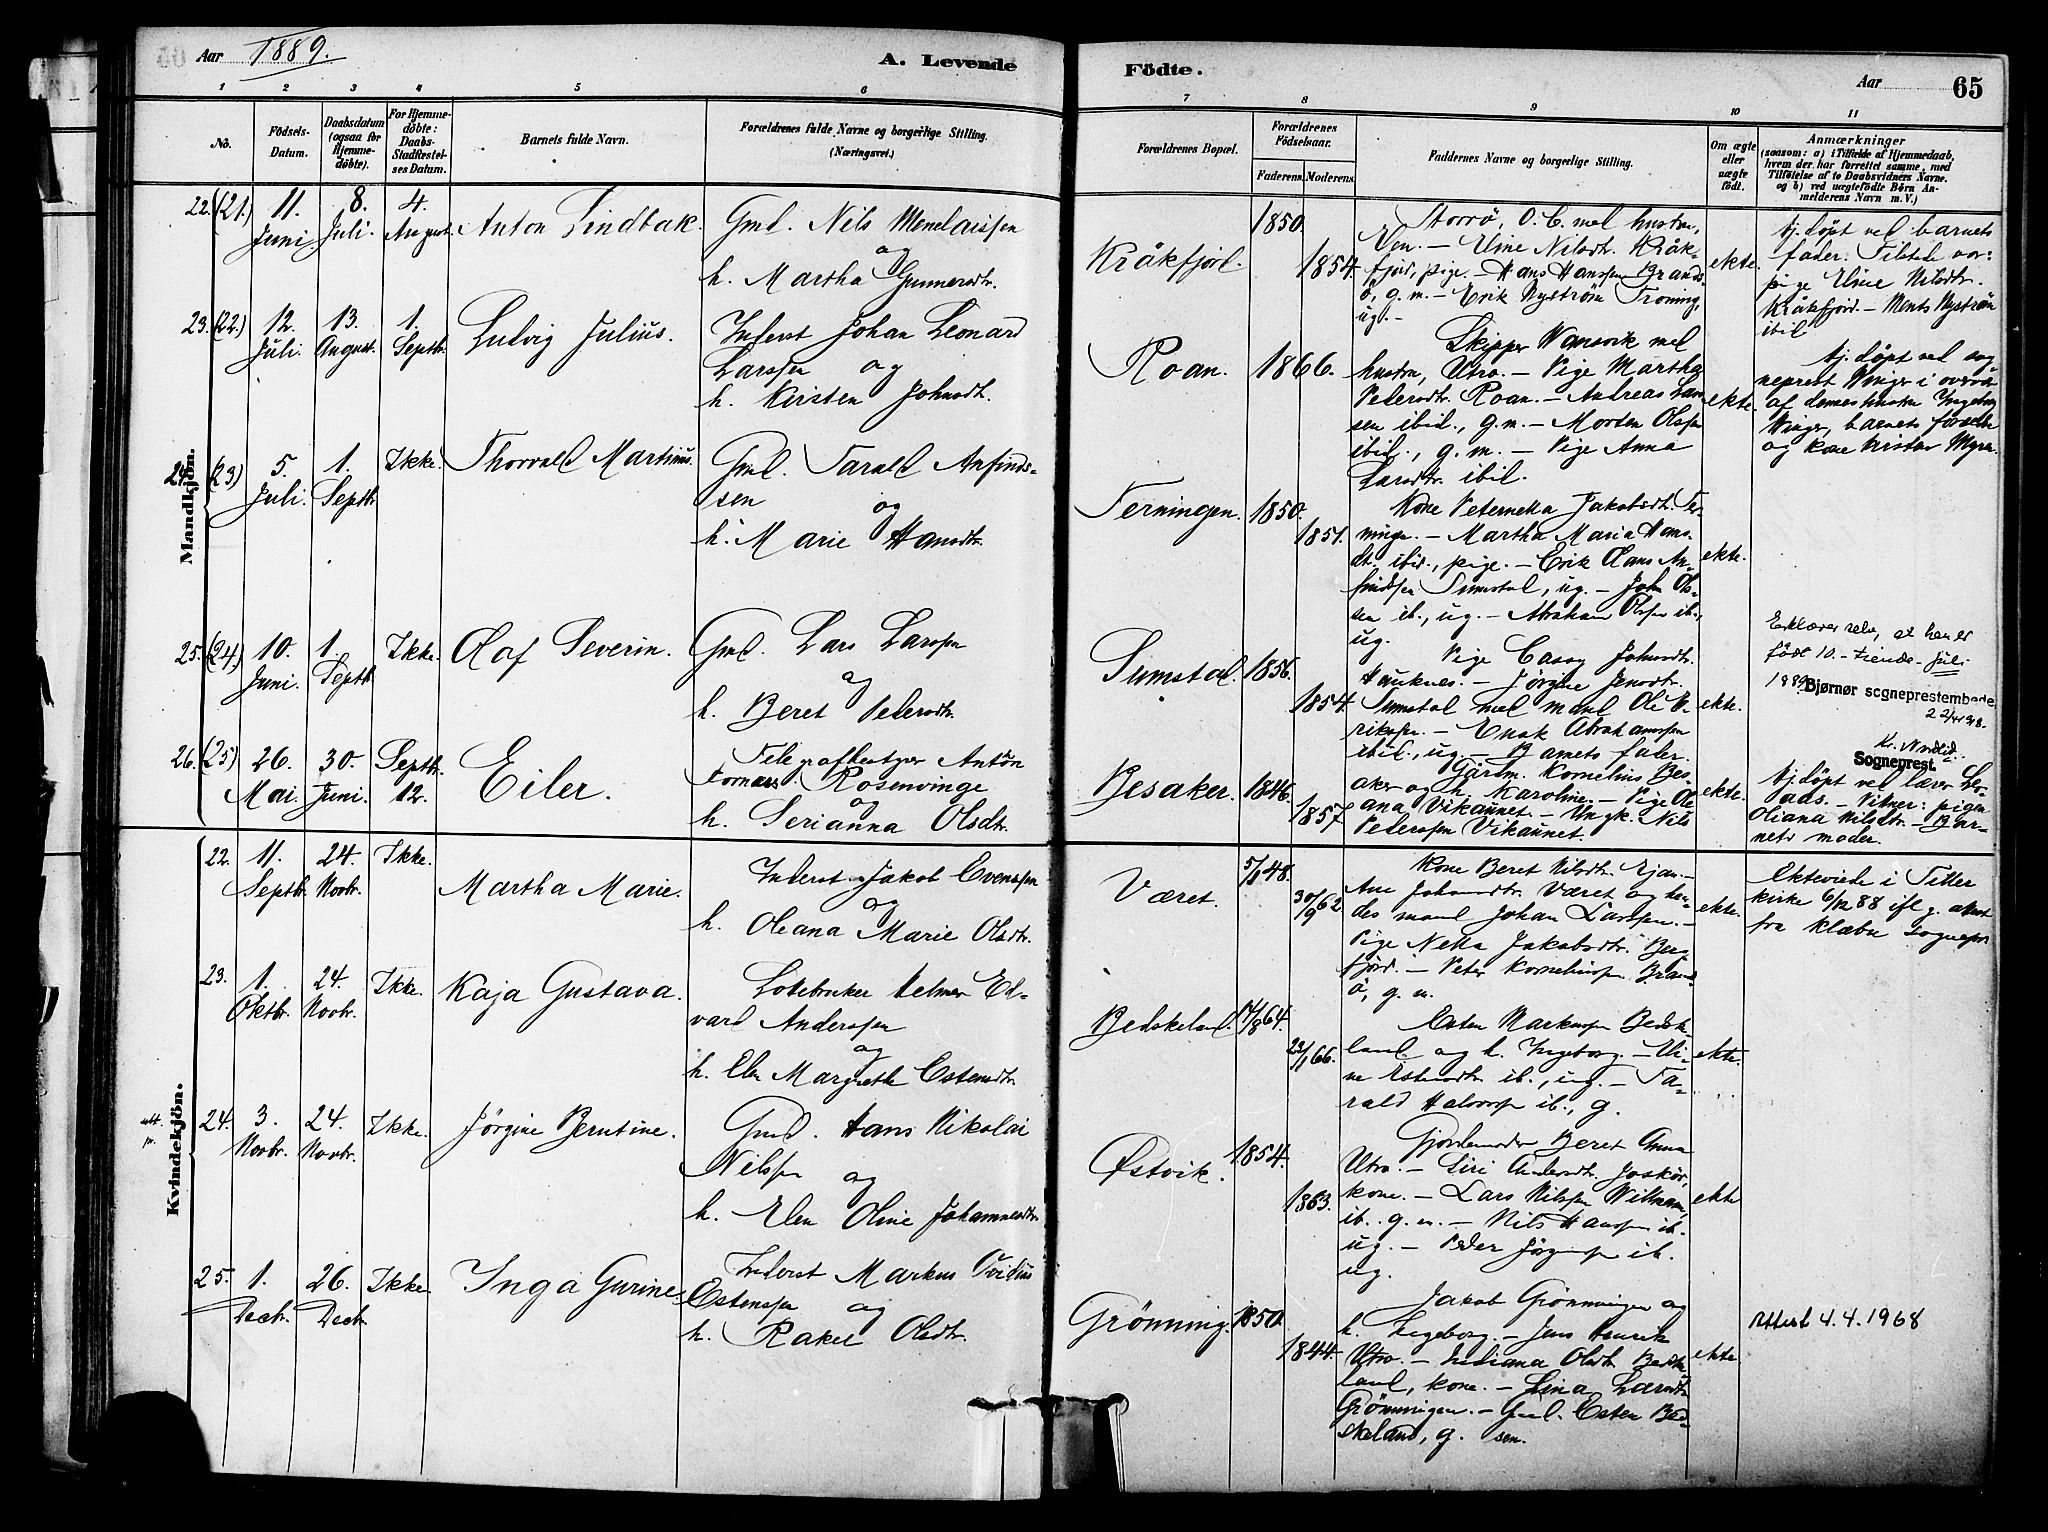 Aar 1889.
A. Levende
Födte.
Aar
65
1 2 3 4 5 6
7 8 9 10 11
No.
Födsels-
Datum.
Daabsdatum
(ogsaa for
Hjemme-
döbte).
For Hjemme-
döbte:
Daabs-
Stadfæstel-
ses Datum.
Barnets fulde Navn.
Forældrenes fulde Navne og borgerlige Stilling.
(Næringsvei.)
Forældrenes Bopæl.
Forældrenes
Födselsaar.
Faderens. Moderens.
Faddernes Navne og borgerlige Stilling.
Om ægte
eller
uægte
födt.
Anmærkninger
(saasom: a) i Tilfælde af Hjemmedaab,
hvem der har forrettet samme, med
Tilföielse af to Daabsvidners Navne.
og b) ved uægtefödte Börn An-
melderens Navn m. V.)
Mandkjön.
22. (21.)
11.
Juni.
8.
Juli.
4.
August.
Anton Lindbak.
Gmd. Nils Mendaissen
og
h. Martha Gunnersdtr.
Kråkfjord.
1850.
1854.
Storrö, O. C. med hustru,
Ven. – Eline Nilsdt. Kråk-
fjord, pige. – Hans Hanssen Brands-
ö, g. m. – Erik Nyström Troning,
ug. –
ekte.
Hj. döpt ved barnets
fader. Tilstede var:
pige Eline Nilsdtr.
Kråkfjord. – Ments Nyström
ibid.
23. (22.)
12.
Juli.
13.
August.
1.
Septbr.
Ludvig Julius.
Inderst Johan Leonard
Larssen og
h. Kirsten Johnsdt.
Roan.
1866.
Skipper Hansvik med
hustru, Utro. – Pige Martha
Pedersdt. Roan. – Andreas Lars-
sen ibid., g. m. – Morten Olssen
ibid., g. m. – Pige Anna
Larsdtr. ibid.
ekte.
Hj. döpt ved sog-
neprest Winger i overvær
af dennes hustru Ingeborg
Winger, barnets forældre
og kone Kristen Myren.
24. (23)
5.
Juli.
1.
Septbr
Ikke.
Thorvald Martinus.
Gmd. Tarald Anfinds-
sen og
h. Marie Hansdtr.
Terningen.
1850.
1851.
Kone Peternella Jakobsdt. Ter-
ninge. – Martha Maria Hans-
dt. ibid., pige. – Erik Hans An-
findssen Sumstad, ug. – John Ols-
sen ib., ug. – Abraham Olssen ib.,
ug.
ekte.
25. (24)
10.
Juni.
1.
Septbr
Ikke.
Olaf Severin.
Gmd. Lars Larssen
og
h. Beret Pedersdtr.
Sumstad.
1856.
1854.
Pige Johnsdtr.
Hauknes. – Jörgine Jensdtr.
Sumstad med mand Ole E-
rikssen. – Enok Abrahamssen
ibid., ug. – Barnets fader.
ekte.
Erklærer selv, at han er
född 10. – tiende – juli
1889. Bjørnør sogneprestembede
Sogneprest.
26. (25)
26.
Mai.
30.
Juni.
Septbr.
12.
Eiler.
Telegrafbestyrer Anton
Rosenvinge
og
h. Serianna Olsdtr.
Besaker.
1846.
1857
Gårdm. Kornelius Bes-
aker og h. Karoline. – Pige Ole-
ana Vikaunet. – Ungk. Nils
Peterssen Vikaunet.
ekte.
Hj. döpt ved lærer
– Vitner: pigen
Oliana Nilsdtr. – Bar-
nets moder.
Kvindekjön.
22.
11.
Septbr
24.
Novbr.
Ikke.
Martha Marie.
Inderst Jakob Evenssen
og
h. Oleana Marie Olsdtr.
Været.
5/1 48.
30/9 62.
Kone Beret Nilsdtr.
Ane Johansdtr. Været og hen-
des mand Johan Larssen. –
Pige Netta Jakobsdtr. Ber-
fjord. – Peter Kornelinssen Brand-
ö, g. m.
ekte.
Ekteviede i Tiller
kirke 6/12 88 ifl g. attest
fra Klæbu Sognepr
23.
1.
Oktbr.
24.
Novbr.
Ikke.
Kaja Gustava.
Lodsbruker Helmer Ed-
vard Anderssen
og
h. Elen Margrethe Estensdtr
Bedskeland.
14/8 64.
23/1 66.
Esten Markussen Bedske-
land og h. Ingeborg. – Eli-
ne Estensdtr ib., ug. – Ta-
rald Halvorssen ib., g.
ekte.
24.
3.
Novbr.
24.
Novbr.
Ikke.
Jörgine Berntine.
Gmd. Hans Nikolai
Nilssen og
h. Elen Oline Johannesdtr
Østvik.
1854.
1863.
Gjordemoder Beret Anna
Utro. – Siri Andersdtr. Joskör,
kone. – Lars Nilssen Wikman,
ib. g. m. – Nils Hanssen ib.
ug. – Peder Jörgenssen ib.
ug.
ekte
25.
1.
Decbr.
26.
Decbr
Ikke.
Inga Gurine.
Inderst Markus Ovidius
Estenssen og
h. Rakel Olsdtr.
Grönning.
1850.
1844.
Jakob Grönningen og
h. Ingeborg. – Jens Henrik
Utro. – Indiana Olsdt. Bedske-
land, kone. – Lina Larsdtr
Grönningen. – Gmd. Esten Bed-
skeland, g. sen.
ekte.
Attest 4.4.1968